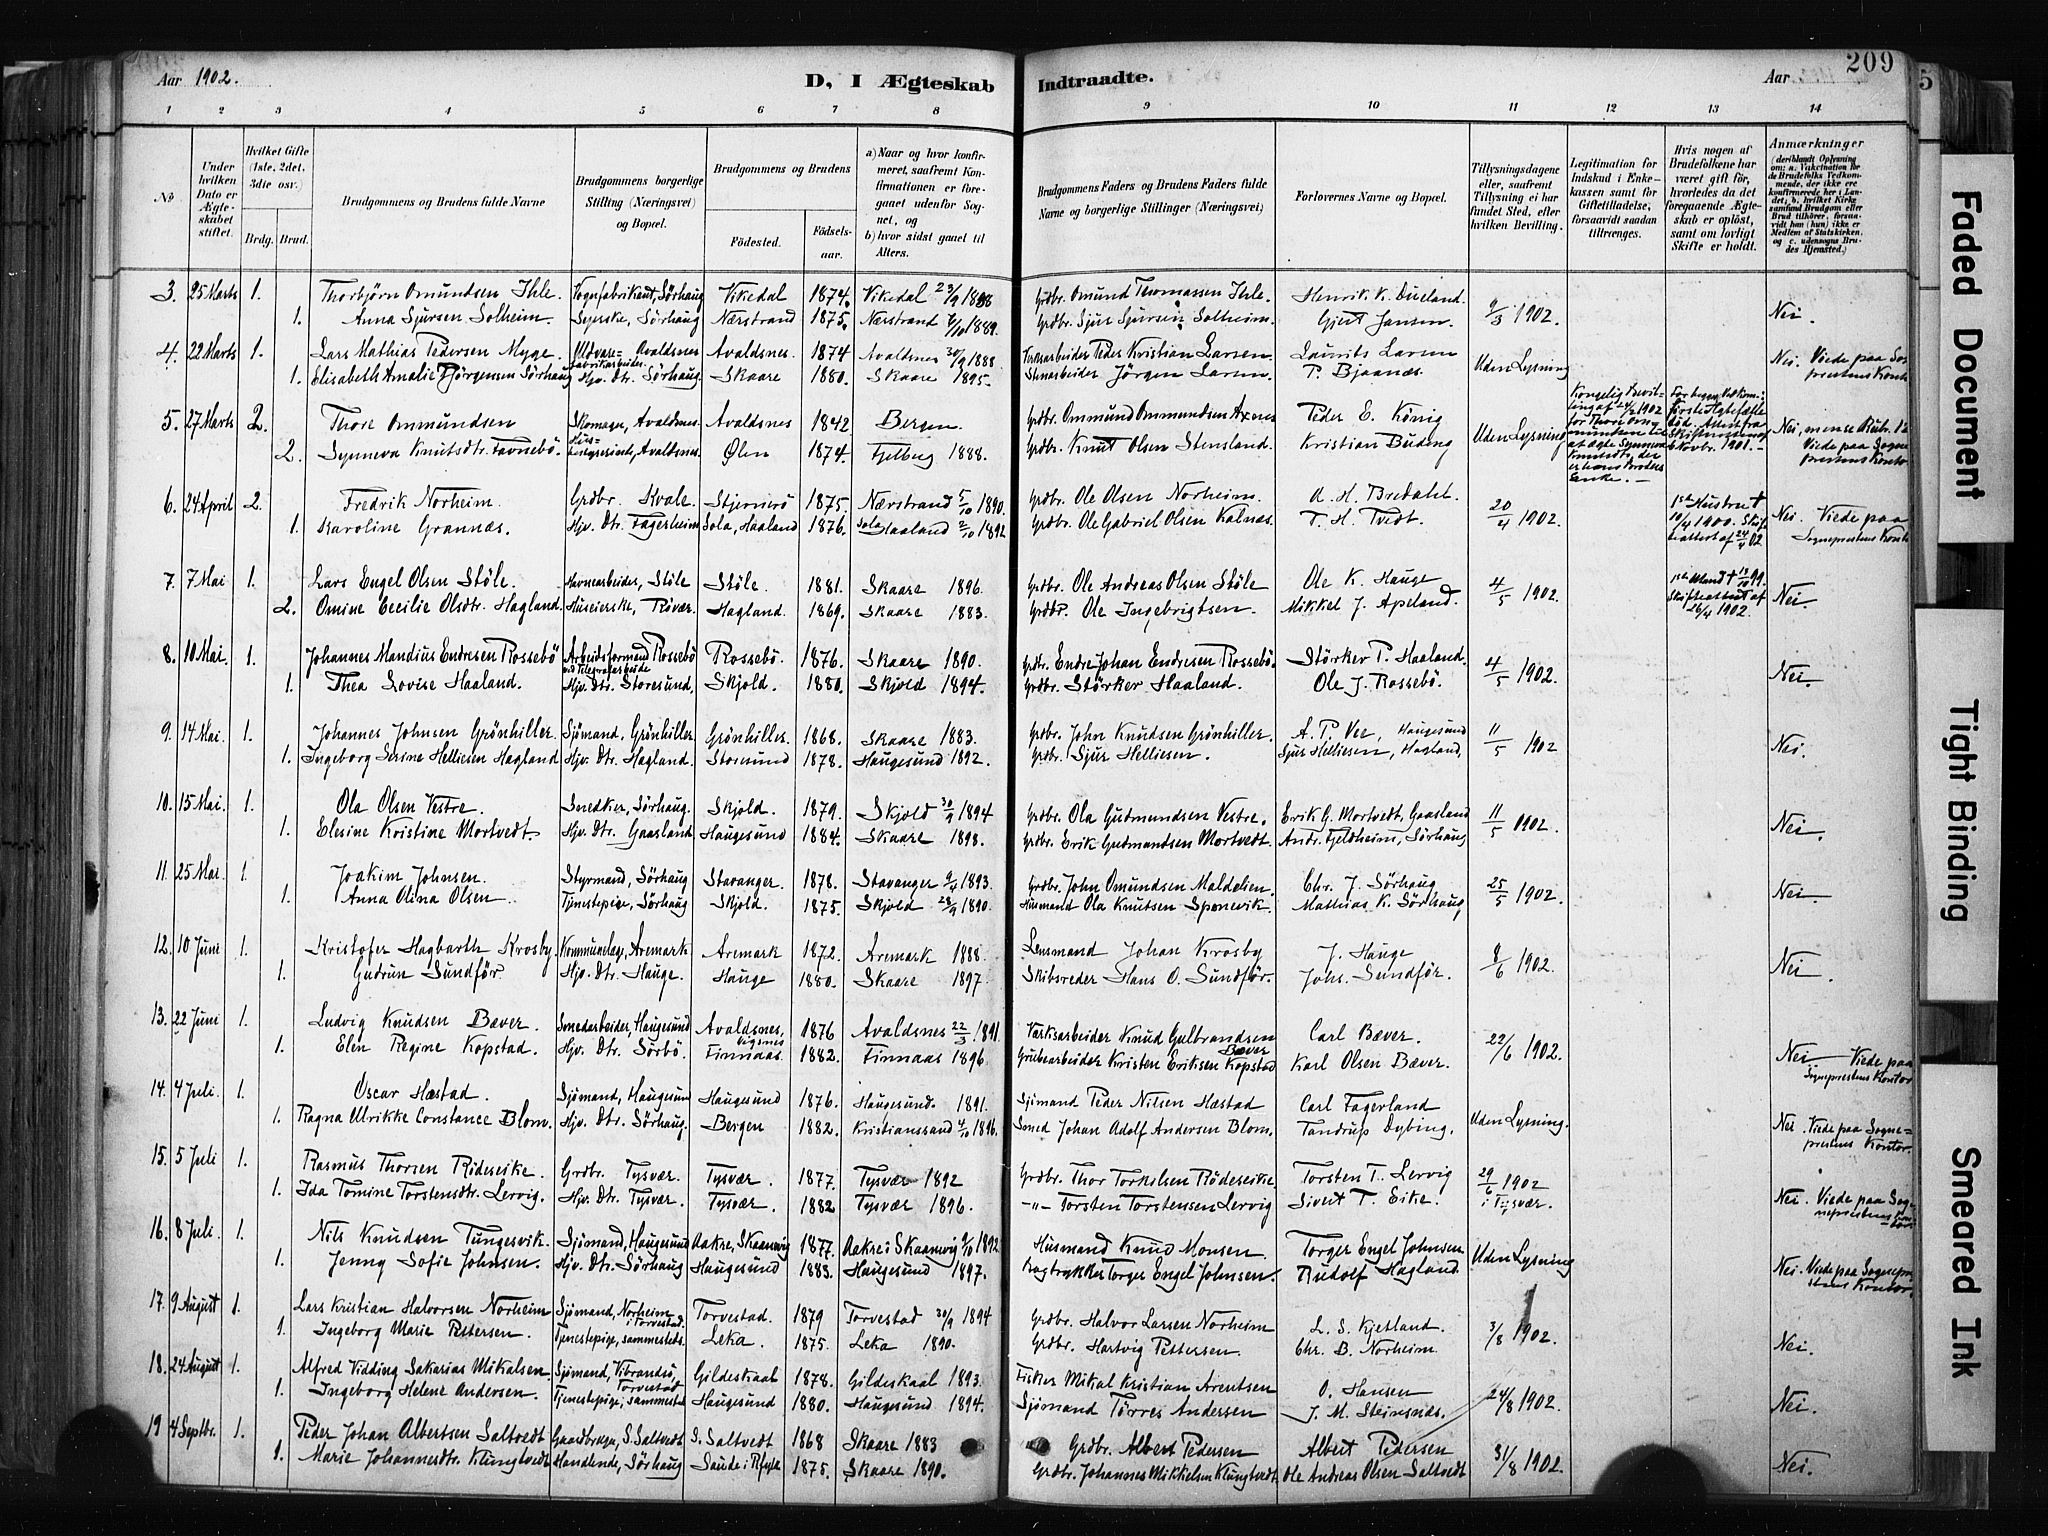 209
Aar 1902.
D, I Ægteskab Indtraadte.
Aar
1 2 3 4 5 6 7 8 9 10 11 12 13 14
No
Under hvilken Dato er Ægteskabet stiftet.
Hvilket Gifte (1ste, 2det, 3die osv.)
Brdg. Brud.
Brudgommens og Brudens fulde Navne
Brudgommens borgerlige Stilling (Næringsvei) og Bopæl.
Brudgommens og Brudens
Födested. Födsels-aar.
a) Naar og hvor konfirmeret, saafremt Konfirmationen er foregaaet udenfor Sognet, og b) hvor sidst gaaet til Alters.
Brudgommens Faders og Brudens Faders fulde Navne og borgerlige Stillinger (Næringsvei)
Forlovernes Navne og Bopæl.
Tillysningsdagene eller, saafremt Tillysning ei har fundet Sted, efter hvilken Bevilling.
Legitimation for Indskud i Enkekassen samt for Giftetilladelse, forsaavidt saadan tiltrænges.
Hvis nogen af Brudefolkene har været gift för, hvorledes da det foregaaende Ægteskab er oplöst, samt om lovligt Skifte er holdt.
Anmærkninger (deriblandt Oplysning om: a. Vaccination for de Brudefolks Vedkommende, der ikke ere konfirmerede her i Landet; b. hvilket Kirkesamfund Brudgom eller Brud tilhörer, forsaavidt han (hun) ikke er Medlem af Statskirken, og c. udensogns Brudes Hjemsted.)
3. 25 Marts 1. Thorbjörn Omundsen Ihle. Vognfabrikant, Sörhaug Vikedal 1874. Vikedal 23/9 1888 Grdbr. Omund Thomassen Ihle. Henrik K. Dueland. 9/3 1902. Nei.
1. Anna Sjursen Solheim. Syerske, Sörhaug Nærstrand 1875. Nærstrand 6/10 1889. Grdbr. Sjur Sjursen Solheim. Gjert Jansen.
4. 22 Marts 1. Lars Mathias Pedersen Myge. Uldvarefabrikarbeider Avaldsnes Avaldsnes. 1874 Avaldsnes 30/9 1888 Peder Kristian Larsen. Laurits Larsen Uden Lysning Nei. Viede paa Sogneprestens Kontor
1. Elisabeth Amalie Jörgensen Sörhaug Hjv. Dtr. Sörhaug. Skaare 1880. Skaare 1895. Stenarbeider Jörgen Larsen. P. Bjaanæs.
5. 27 Marts 2. Thore Ommundsen Skomager, Avaldsnes. Avaldsnes 1842 Bergen. Grdbr. Ommund Ommundsen Axnes Peder E. König Uden Lysning Kongelig Bevilling af 24/2 1902 for Thore Ommundsen til at ægte Synneva Knutsdtr. der er hans broders Enke. Nei,
2. Synneva Knutsdtr. Favnebö. Husbestyrerinde, Avaldsnes. Ølen 1874. Fjelberg 1888. Grdbr. Knut Olsen Stensland. Kristian Buding Viede paa Sogneprestens Kontor
6. 24 April 2. Fredrik Norheim. Grdbr. Kvale. Stjernerö 1875. Nærstrand 5/10 1890. Grdbr. Ole Olsen Norheim. A. H. Bredahl. 20/4 1902. 1ste Hustru † 10/4 1900. Skifteattest af 24/4 02 Nei. Viede paa Sogneprestens Kontor
1. Karoline Grannæs. Hjv. Dtr. Fagerheim Sola, Haaland 1876. Sola Haaland 2/10 1892 Grdbr. Ole Gabriel Olsen Kalnæs. T. H. Tvedt.
7. 7 Mai 1. Lars Engel Olsen Stöle. Havnearbeider, Stöle Stöle. 1881. Skaare 1896. Grdbr. Ole Andreas Olsen Stöle Ole K. Hauge 4/5 1902. 1ste Mand † 13/10 99. Skifteattest af 26/4 1902. Nei.
2. Omine Cecilie Olsdtr. Hagland. Huseierske, Rövær. Hagland. 1869. Skaare 1883. Grdbr. Ole Ingebrigtsen. Mikkel J. Apeland.
8. 10 Mai. 1. Johannes Mandius Endresen Rossebö Arbeidsformand Rossebö ved Telegrafarbeide Rossebö. 1876. Skaare 1890. Grdbr. Endre Johan Endresen Rossebö. Störker P. Haaland. 4/5 1902. Nei.
1. Thea Lovise Haaland. Hjv. Dtr. Storesund, Skjold. 1880. Skjold 1894. Grdbr. Störker Haaland. Ole J. Rossebö.
9. 14 Mai. 1. Johannes Johnsen Grönhiller. Sjömand, Grönhiller. Grönhiller. 1868. Skaare 1883. Grdbr. John Knudsen Grönhiller. A. P. Vee, Haugesund 11/5 1902 Nei.
1. Ingeborg Serine Helliesen Hagland Hjv. Dtr. Hagland. Storesund 1878. Haugesund 1892. Grdbr. Sjur Helliesen. Sjur Helliesen, Hagland,
10. 15 Mai. 1. Ola Olsen Vestre. Snedker, Sörhaug. Skjold. 1879. Skjold 30/9 1894 Grdbr. Ola Gudmundsen Vestre. Erik G. Mortvedt, Gaasland 11/5 1902. Nei.
1. Elesine Kristine Mortvedt Hjv. Dtr. Gaasland Haugesund 1884. Skaare 1898. Grdbr. Erik Gudmundsen Mortvedt. Andr. Fjeldheim, Sörhaug
11. 25 Mai. 1. Joakim Johnsen. Styrmand, Sörhaug Stavanger. 1878. Stavanger 9/4 1893. Grdbr. John Omundsen Maldelien. Chr. J. Sörhaug 25/5 1902. Nei.
1. Anna Olina Olsen. Tjenestepige, Sörhaug Skjold. 1875. Skjold 28/9 1890. Husmand Ola Knutsen Sponevik. Mathias K. Sörhaug,
12. 10 Juni 1. Kristofer Hagbarth Krosby. Kommunelæge, Aremark Aremark 1872. Aremark 1888. Lensmand Johan Krosby J. Hauge 8/6 1902. Nei.
1. Gudrun Sundför Hjv. Dtr. Hauge. Hauge 1880. Skaare 1897. Skibsreder Hans O. Sundför. Johs. Sundför.
13. 22 Juni 1. Ludvig Knudsen Bæver. Smedarbeider, Haugesund Avaldsnes, Vigsnes 1876 Avaldsnes 22/3 1891 Værksarbeider Knud Gulbrandsen Bæver Carl Bæver. 22/6 1902. Nei Viede paa Sogneprestens Kontor
1. Elen Regine Kopstad. Hjv. Dtr. Sörbö. Finnaas. 1882. Finnaas 1896. Grubearbeider Kristen Eriksen Kopstad Karl Olsen Bæver.
14. 4 Juli. 1. Oscar Hæstad. Sjömand, Haugesund Haugesund 1876. Haugesund. 1891. Sjömand Peder Nilsen Hæstad Carl Fagerland Uden Lysning. Nei. Viede paa Sogneprestens Kontor.
1. Ragna Ulrikke Constance Blom. Hjv. Dtr. Sörhaug. Bergen 1882. Kristianssand 4/10 1896. Smed Johan Adolf Andersen Blom. Tandrup Dybing.
15. 5 Juli 1. Rasmus Thorsen Rideseike. Grdbr. Tysvær. Tysvær. 1877. Tysvær 1892 Grdbr. Thor Torkelsen Rödeseike. Torsten T. Lervig 29/6 1902 i Tysvær. Nei. Viede paa Sogneprestens Kontor
1. Ida Tomine Torstensdtr. Lervig. Hjv. Dtr. Tysvær. Tysvær. 1882 Tysvær 1896. -"- Torsten Torstensen Lervig Sivert T. Eike.
16. 8 Juli. 1. Nils Knudsen Tungesvik. Sjömand, Haugesund Aakre, Skaanevig 1877. Aakre i Skaanevig 9/10 1892. Husmand Knud Monsen. Torger Engel Johnsen Uden Lysning Nei. Viede paa Sogneprestens Kontor.
1. Jenny Sofie Johnsen. Hjv. Dtr. Sörhaug Haugesund 1883. Haugesund 1897. Bogtrykker Torger Engel Johnsen. Rudolf Hagland.
17. 9 August 1. Lars Kristian Halvorsen Norheim Sjömand, Norheim i Torvestad. Torvestad. 1879 Torvestad 30/9 1894 Grdbr. Halvor Larsen Norheim L. S. Kjetland. 3/8 1902. Nei.
1. Ingeborg Marie Pettersen. Tjenestepige, sammesteds. Leka. 1875. Leka 1890. Grdbr. Hartvig Pettersen. Chr. B. Norheim.
18. 24 August 1. Alfred Vidding Sakarias Mikalsen Sjömand, Vibrandsö, Torvestad Gildeskaal 1878. Gildeskaal 1893. Fisker Mikal Kristian Arentsen O. Hansen 24/8 1902. Nei.
1. Ingeborg Helene Andersen. Tjenestepige, sammesteds Haugesund 1880. Haugesund 1894. Sjömand Törres Andersen J. M. Steinsnæs.
19 4 Septbr. 1. Peder Johan Albertsen Saltvedt Gaardbruger, S. Saltvedt S. Saltvedt 1868 Skaare 1883 Grdbr. Albert Pedersen Albert Pedersen 31/8 1902. Nei.
1. Marie Johannesdtr. Klungtvedt Handlende, Sörhaug Saude i Ryfylke 1875. Skaare 1890. Grdbr. Johannes Mikkelsen Klungtvedt Ole Andreas Olsen Saltvedt
5
Faded Document
Tight Binding
Smeared Ink